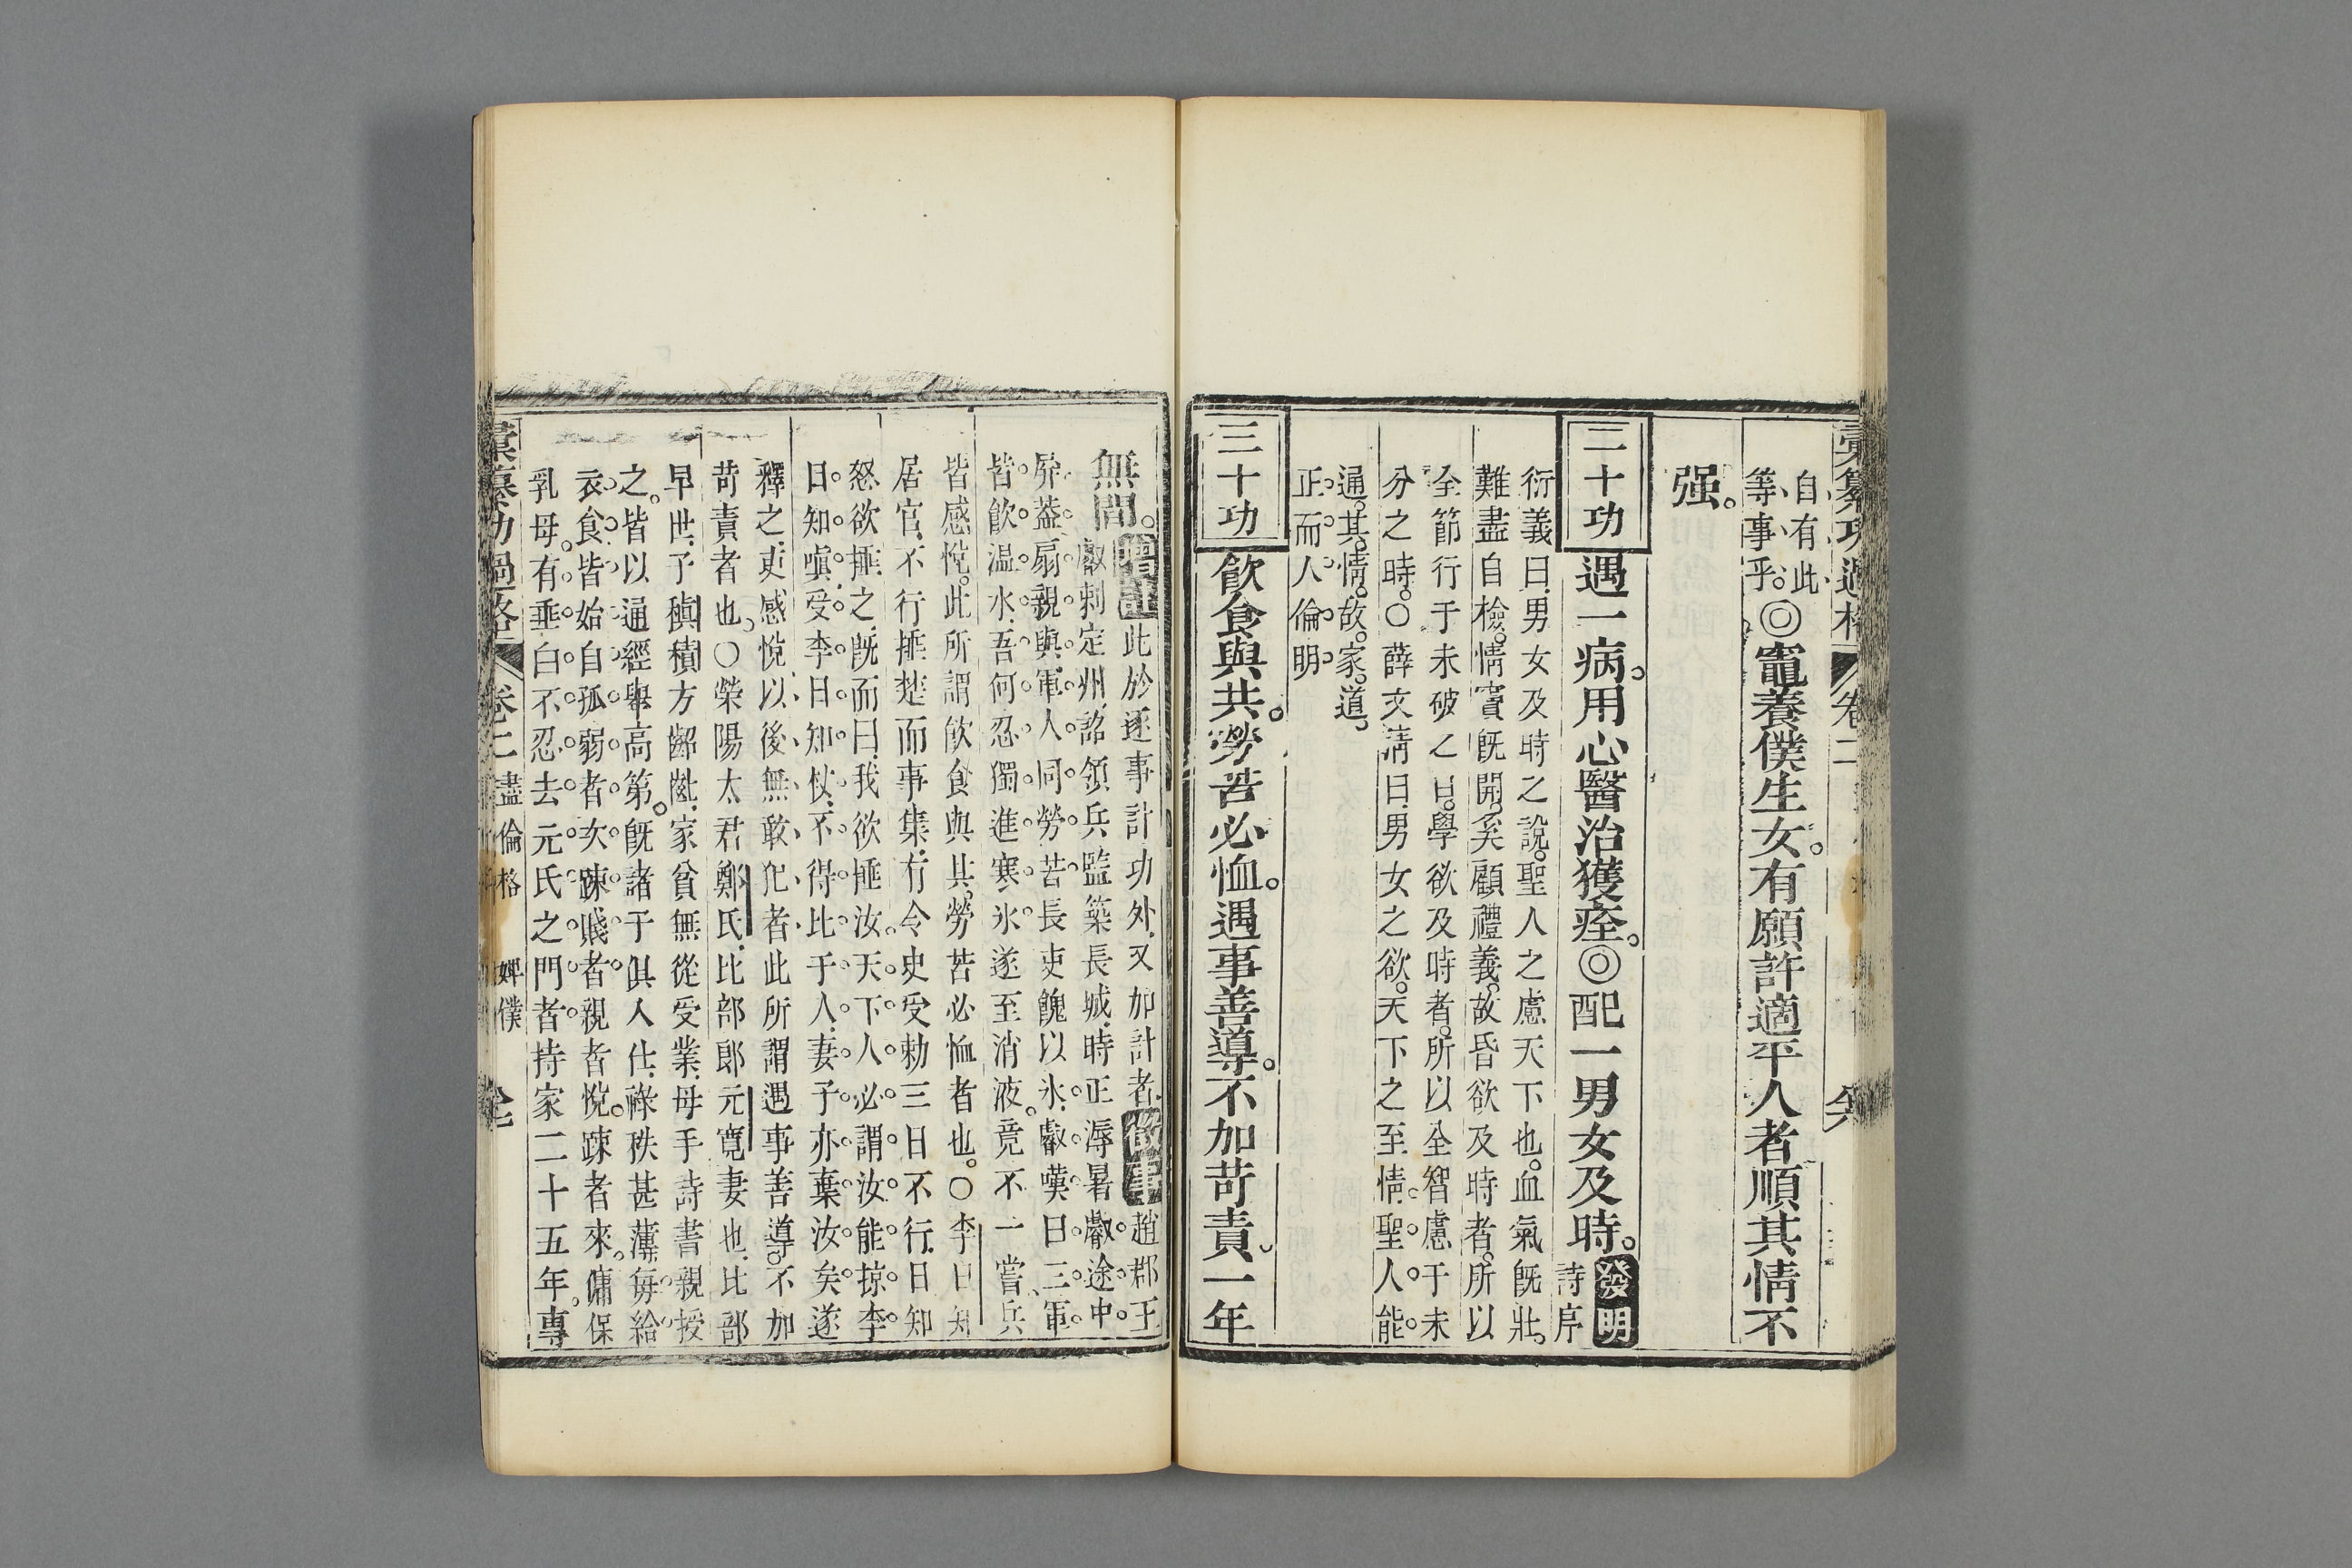 彙纂功過格 卷二
自有此
等事乎。◎竈養僕生女。有願許適平人者順其情不
强。
二十功 遇一病。用心醫治獲痊。◎配一男女及時。發明 詩序
衍義曰男女及時之說。聖人之慮天下也。血氣旣壯。
難盡自檢。情竇旣開。奚顧禮義。故昏欲及時者。所以
全節行于未破之日。學欲及時者。所以全智慮于未
分之時。○薛文淸曰男女之欲。天下之至情。聖人能
通。其情。故。家。道。
正。而。人。倫。明
三十功 飮食與共。勞苦必恤。遇事善導。不加苛責。一年
無間。此於逐事計功外又加計者。徵事趙郡王
叡刺定州詔領兵監築長城時正溽暑叡途中。
屛蓋扇親與軍人同勞苦長吏餽以氷叡嘆曰三軍
皆飮温水吾何忍獨進寒氷遂至消液。竟不一嘗兵
皆感悅。此所謂飮食與共。勞苦必恤者也。○李日知
居官不行捶楚而事集有令史受勅三日不行日知
怒欲捶之旣而曰我欲捶汝天下人必謂汝能掠李
日知嗔受李日知杖不得比于人妻子亦棄汝矣遂
釋之吏感悅以後無敢犯者此所謂遇事善導。不加
苛責者也。○榮陽太君鄭氏比部郎元寬妻也比部
早世予稹積方齠齔家貧無從受業母手詩書親授
之。皆以通經舉高第。旣諸子俱入仕祿秩甚薄每給
衣食皆始自孤弱者次疎賤者親者悅。疎者來。傭保
乳母。有垂白不忍去元氏之門者持家二十五年。專
彙纂功過格 卷二 盡倫格 婢僕